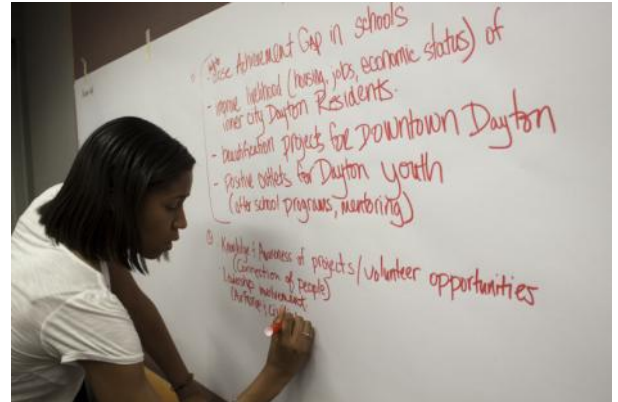 Close Achievement Gap in schools
- improve livelihood (housing, jobs, economic status) of
inner city Dayton Residents.
- beautification projects for Downtown Dayton
- positive outlets for Dayton youth
(after school programs, mentoring)
Knowledge & Awareness of projects/volunteer opportunities
(Connection of people)
Leadership involvement
(Airforce &